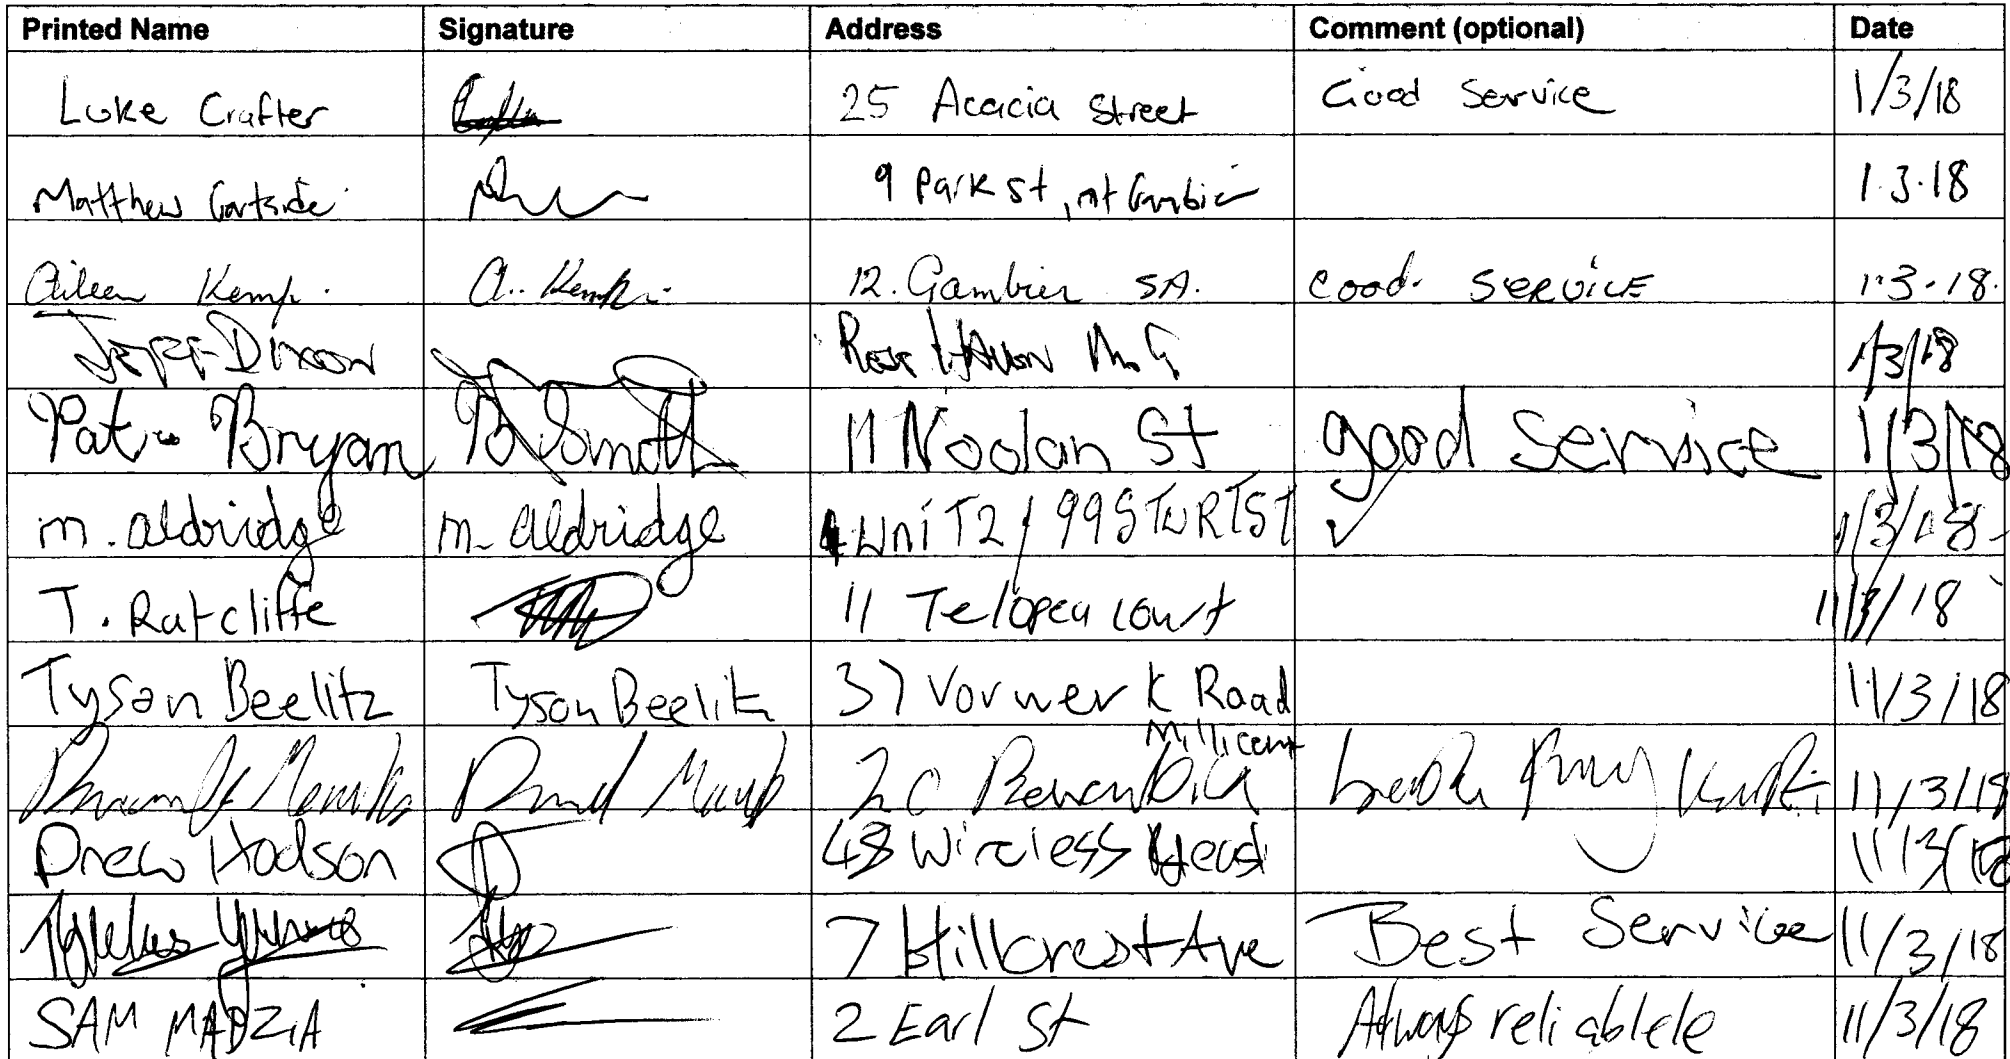 Printed Name Signature Address Comment (optional) Date
Luke Crafter 25 Acacia Street Good Service 1/3/18
Matthew Gartside 9 Park St, Mt Gambier 1.3.18
Aileen Kemp. A. Kemp. 12. Gambier SA. Good. SERVICE 1.3.18.
Jeff Dixon M G 1/3/18
Pat Bryan 11 Noolan St good Service 1/3/18
m. aldridge m. aldridge UniT2/99 STURT ST ✓ 1/3/18
T. Ratcliffe 11 Telopea court 18
Tyson Beelitz Tyson Beelitz 37 Vorwerk Road 11/3/18
Millicent
11/3/18
Drew Hodson 48 Wireless 11/3/18
7 Hillcrest Ave Best Service 11/3/18
SAM MADZIA 2 Earl St Always reliablele 11/3/18